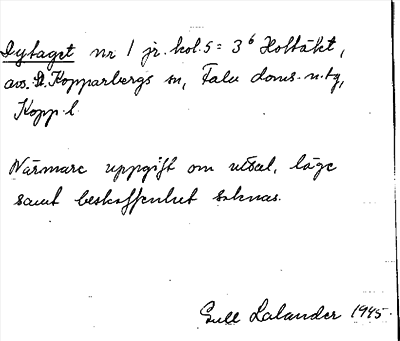 Nytaget nr 1 jr. kol. 5 = 3⁶ Holtäkt,
avs. St. Kopparbergs sn, Falu doms. n. tg,
Kopp. l.
Närmare uppgift om utseel, läge
samt beskaffenhet saknas.
Gull Lalander 1945.